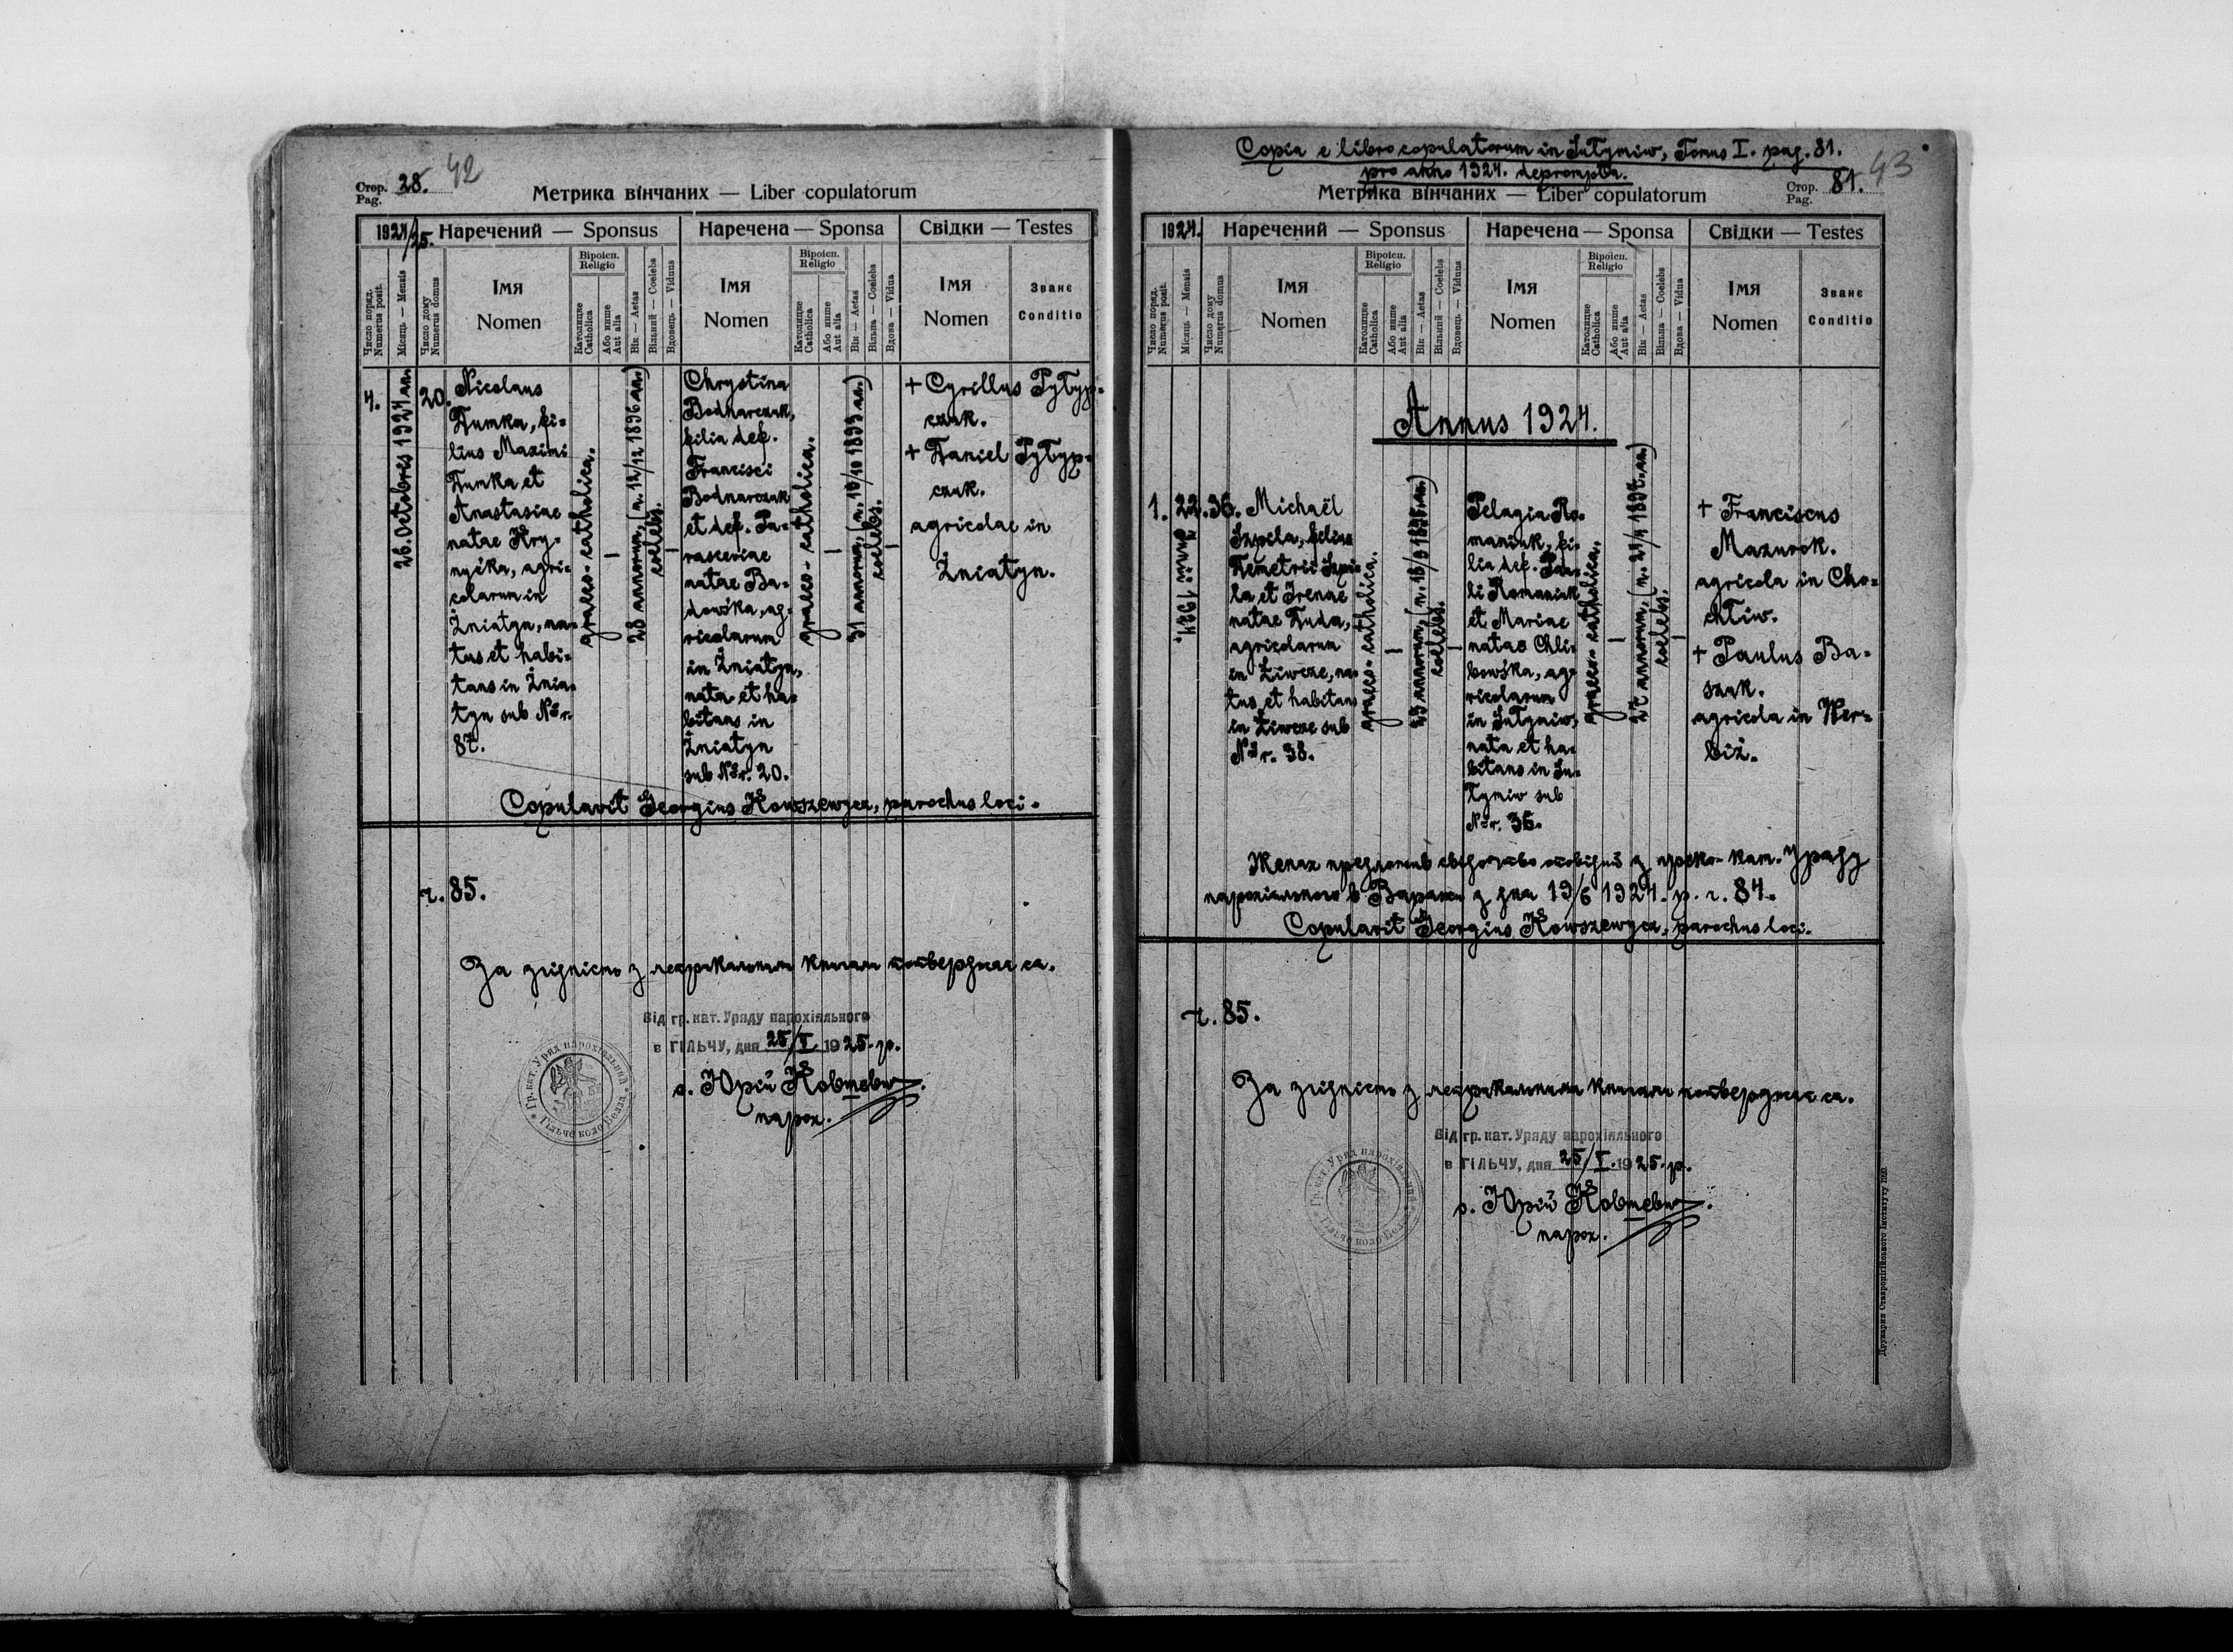 Стор. 28. 42
Pag.
Метрика вінчаних — Liber copulatorum
1924/25. Наречений — Sponsus Наречена — Sponsa Свідки — Testes
Число поряд. Numerus posit.
Місяць — Mensis
Число дому Numerus domus
Імя Nomen
Віроісп. Religio
Католицке Catholica
Або инше Aut alia
Вік — Aetas
Вільний — Coelebs
Вдовець — Viduus
Імя Nomen
Віроісп. Religio
Католицке Catholica
Або инше Aut alia
Вік — Aetas
Вільна — Coelebs
Вдова — Vidua
Імя Nomen
Званє Conditio
4.
26. Octobris 1924 an.
20.
Nicolaus
Dumka, fi-
lius Maximi
Dumka et
Anastasiae
natae Hry-
nyćka, agri-
colarum in
Żniatyn, na-
tus et habi-
tans in Żnia-
tyn sub Nr.
87.
graeco-catholica.
—
28 annorum, (n. 12/12 1896 an.)
coelebs.
—
Chrystina
Bodnarczuk,
filia def.
Francisci
Bodnarczuk
et def. Pa-
rasceviae
natae Ba-
dowśka, ag-
ricolarum
in Żniatyn,
nata et ha-
bitans in
Żniatyn
sub Nr. 20.
graeco-catholica.
—
31 annorum, (n. 19/10 1893 an.)
coelebs.
—
+ Cyrillus Pytyp-
czuk.
+ Daniel Pytyp-
czuk.
agricolae in
Żniatyn.
Copulavit Georgius Kowszewycz, parochus loci.
ч. 85.
За згідність з метрикальними книгами потверджає ся.
Від гр. кат. Уряду парохіяльного
в ГІЛЬЧУ, дня 25/I 1925. р.
о. Юрій Ковшевич.
парох.
Гр. кат. Уряд парохіяльний
Copia e libro copulatorum in Sutymiw, Tomus I. pag. 81.
pro anno 1924. deprompta.
Метрика вінчаних — Liber copulatorum
Стор. 81. 43
Pag.
1924. Наречений — Sponsus Наречена — Sponsa Свідки — Testes
Число поряд. Numerus posit.
Місяць — Mensis
Число дому Numerus domus
Імя Nomen
Віроісп. Religio
Католицке Catholica
Або инше Aut alia
Вік — Aetas
Вільний — Coelebs
Вдовець — Viduus
Імя Nomen
Віроісп. Religio
Католицке Catholica
Або инше Aut alia
Вік — Aetas
Вільна — Coelebs
Вдова — Vidua
Імя Nomen
Званє Conditio
Annus 1924.
1.
22.
Junii 1924.
36.
Michaël
Szpila, filius
Demetrii Szpi-
la et Irenae
natae Duda,
agricolarum
in Liwcze, na-
tus et habitans
in Liwcze sub
Nr. 38.
graeco-catholica.
—
coelebs.
—
Pelagia Ro-
maniuk, fi-
lia def. Pau-
li Romaniuk
et Mariae
natae Chli-
bowśka, ag-
ricolarum
in Sutymiw,
nata et ha-
bitans in Su-
tymiw sub
Nr. 36.
graeco-catholica.
—
coelebs.
—
+ Franciscus
Mazurok.
agricola in Cho-
chliw.
+ Paulus Ba-
szuk.
agricola in Wer-
biż.
Copulavit Georgius Kowszewycz, parochus loci.
ч. 85.
За згідність з метрикальними книгами потверджає ся.
Від гр. кат. Уряду парохіяльного
в ГІЛЬЧУ, дня 25/I. 1925. р.
о. Юрій Ковшевич.
парох.
Друкарня Ставропігійського Інституту